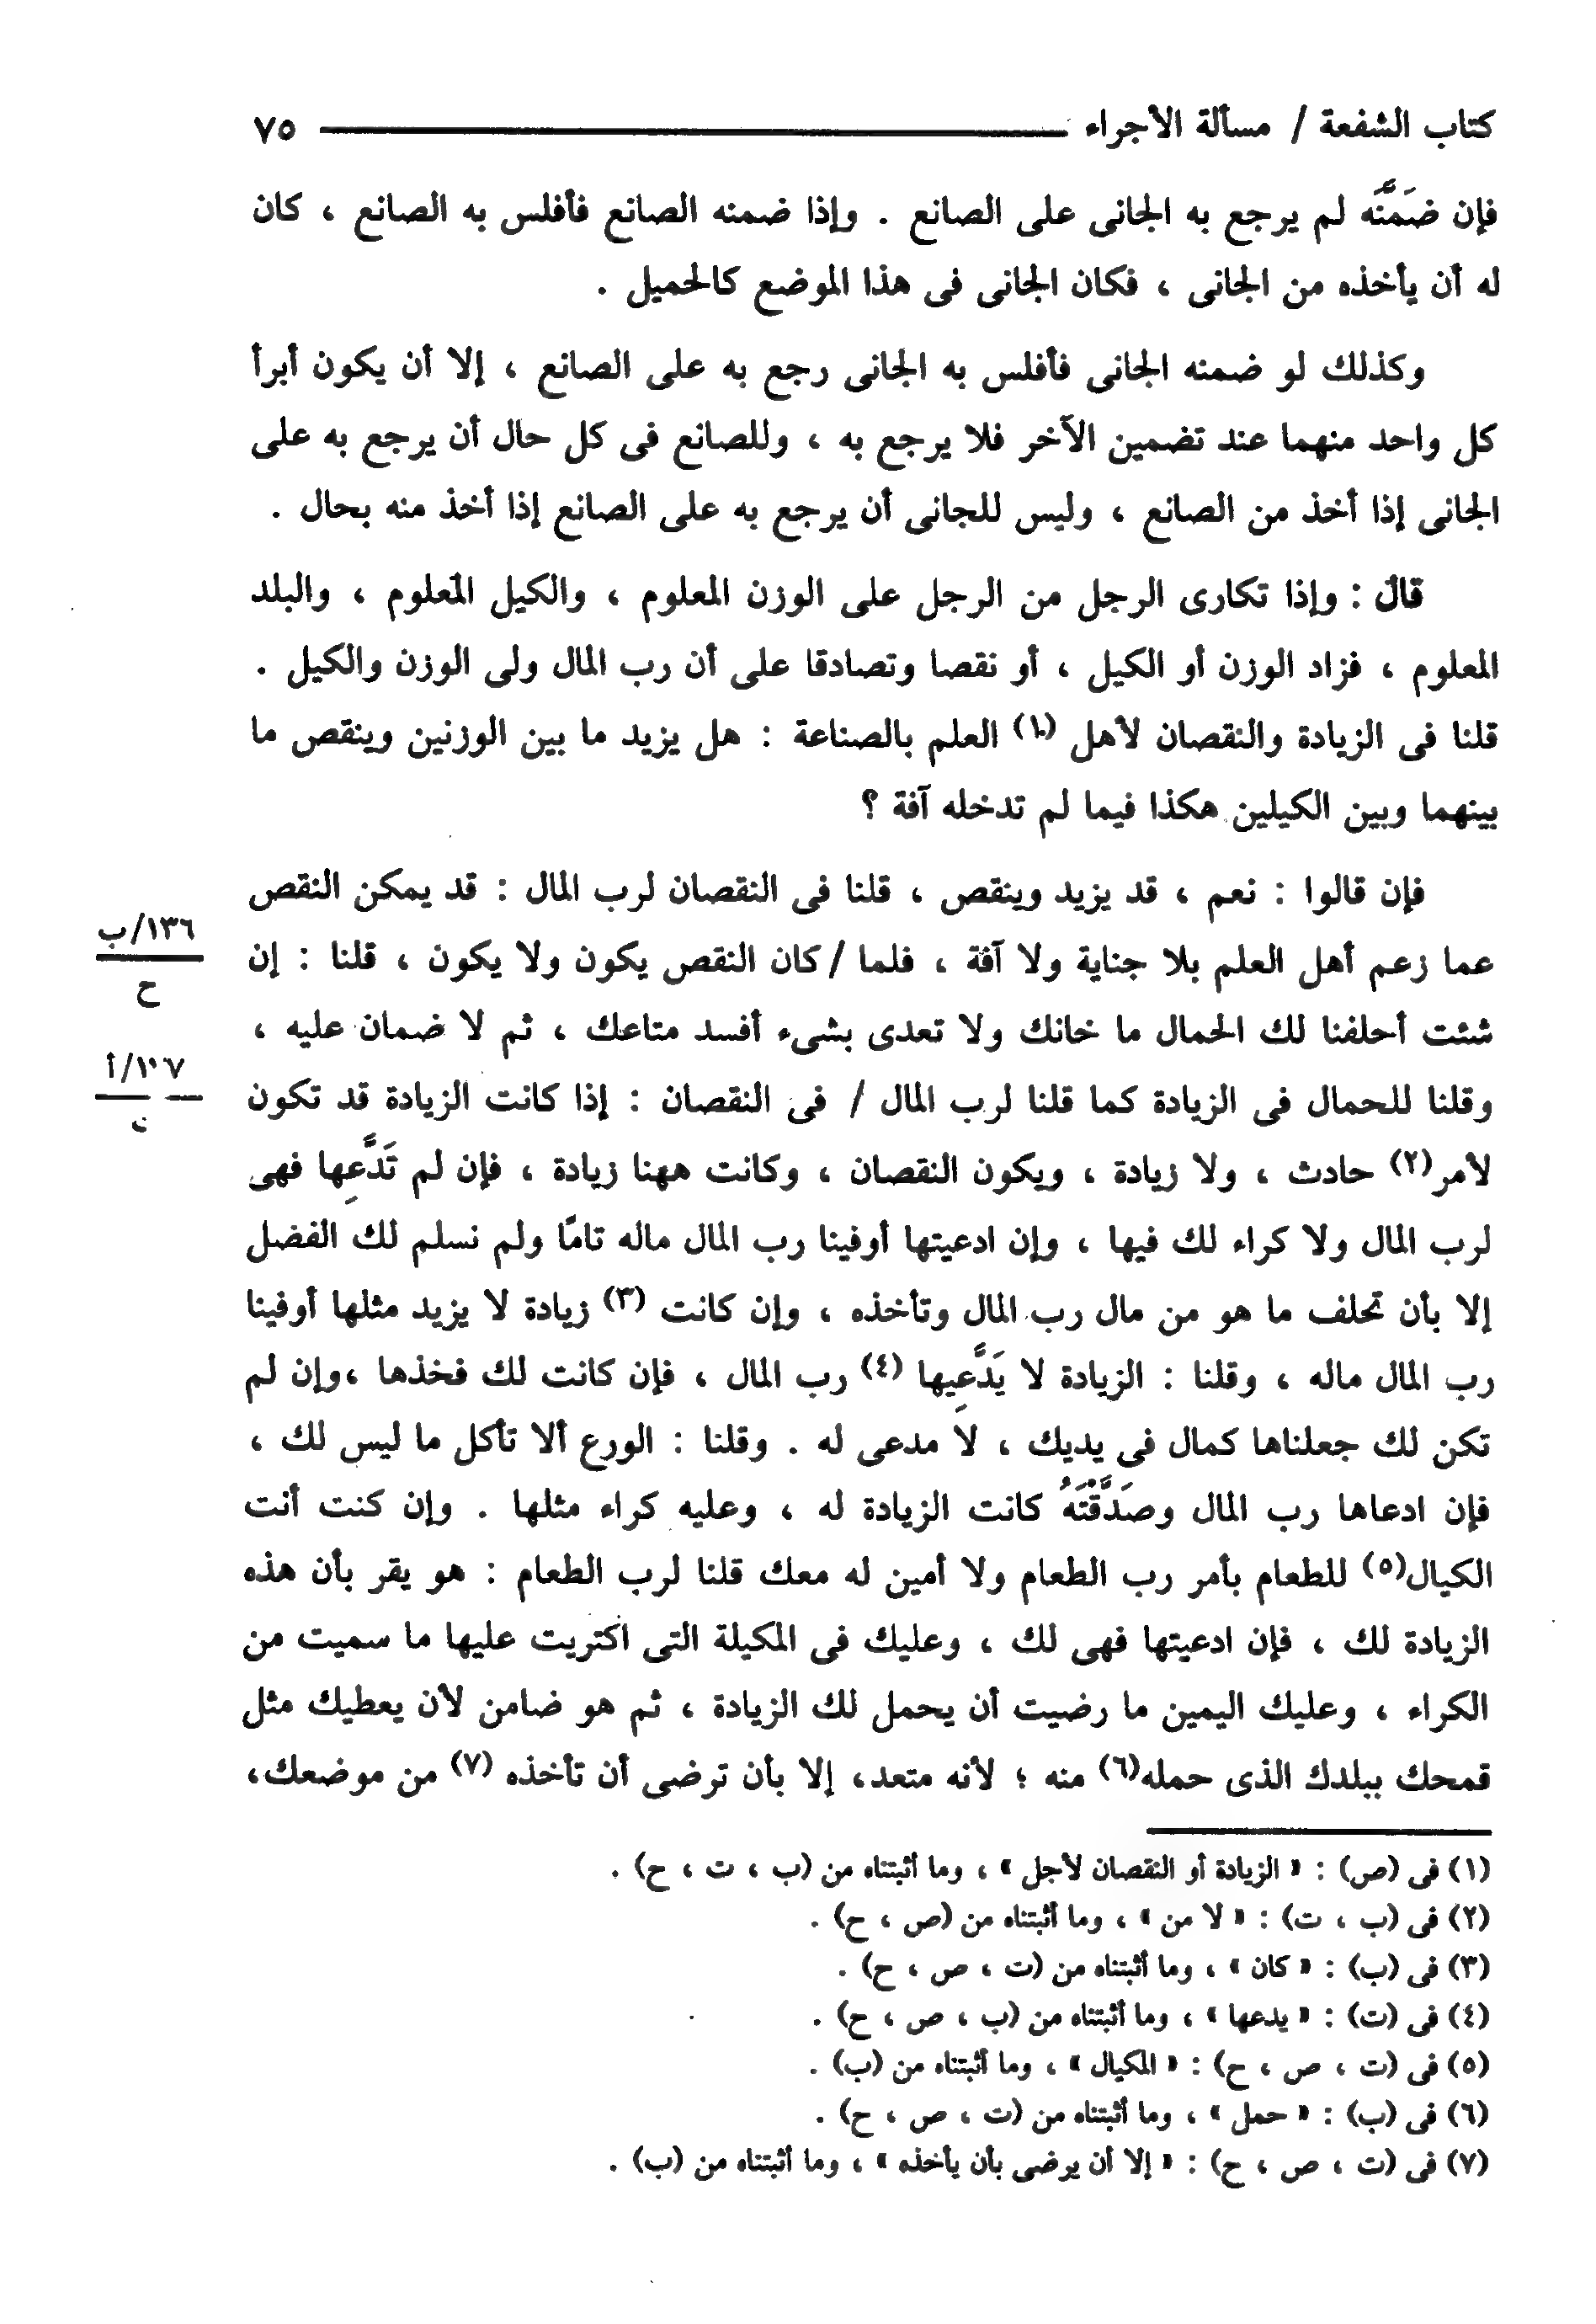 كتاب الشفعة / مسألة الأجراء ٧٥
فإن ضَمنَّه لم يرجع به الجانى على الصانع . وإذا ضمنه الصانع فأفلس به الصانع ، كان
له أن يأخذه من الجانى ، فكان الجانى فى هذا الموضع كالحميل .
وكذلك لو ضمنه الجانى فأفلس به الجانى رجع به على الصانع ، إلا أن يكون أبرأ
كل واحد منهما عند تضمين الآخر فلا يرجع به ، وللصانع فى كل حال أن يرجع به على
الجانى إذا أخذ من الصانع ، وليس للجانى أن يرجع به على الصانع إذا أخذ منه بحال .
قال : وإذا تكارى الرجل من الرجل على الوزن المعلوم ، والكيل المعلوم ، والبلد
المعلوم ، فزاد الوزن أو الكيل ، أو نقصا وتصادقا على أن رب المال ولى الوزن والكيل .
قلنا فى الزيادة والنقصان لأهل (١) العلم بالصناعة : هل يزيد ما بين الوزنين وينقص ما
بينهما وبين الكيلين هكذا فيما لم تدخله آفة ؟
فإن قالوا : نعم ، قد يزيد وينقص ، قلنا فى النقصان لرب المال : قد يمكن النقص
١٣٦/ب
عما زعم أهل العلم بلا جناية ولا آفة ، فلما / كان النقص يكون ولا يكون ، قلنا : إن
ح
شئت أحلفنا لك الحمال ما خانك ولا تعدى بشىء أفسد متاعك ، ثم لا ضمان عليه ،
١٠٧/أ
وقلنا للحمال فى الزيادة كما قلنا لرب المال / فى النقصان : إذا كانت الزيادة قد تكون
لأمر(٢) حادث ، ولا زيادة ، ويكون النقصان ، وكانت ههنا زيادة ، فإن لم تَدَّعِها فهى
لرب المال ولا كراء لك فيها ، وإن ادعيتها أوفينا رب المال ماله تامًا ولم نسلم لك الفضل
إلا بأن تحلف ما هو من مال رب المال وتأخذه ، وإن كانت (٣) زيادة لا يزيد مثلها أوفينا
رب المال ماله ، وقلنا : الزيادة لا يَدَّعِيها (٤) رب المال ، فإن كانت لك فخذها ،وإن لم
تكن لك جعلناها كمال فى يديك ، لا مدعى له . وقلنا : الورع ألا تأكل ما ليس لك ،
فإن ادعاها رب المال وصَدَّقْتَهُ كانت الزيادة له ، وعليه كراء مثلها . وإن كنت أنت
الكيال(٥) للطعام بأمر رب الطعام ولا أمين له معك قلنا لرب الطعام : هو يقر بأن هذه
الزيادة لك ، فإن ادعيتها فهى لك ، وعليك فى المكيلة التى اكتريت عليها ما سميت من
الكراء ، وعليك اليمين ما رضيت أن يحمل لك الزيادة ، ثم هو ضامن لأن يعطيك مثل
قمحك ببلدك الذى حمله(٦) منه ؛ لأنه متعد، إلا بأن ترضى أن تأخذه (٧) من موضعك،
(١) فى (ص) : « الزيادة أو النقصان لأجل » ، وما أثبتناه من (ب ، ت ، ح) .
(٢) فى (ب ، ت) : « لا من » ، وما أثبتناه من (ص ، ح) .
(٣) فى (ب) : « كان » ، وما أثبتناه من (ت ، ص ، ح) .
(٤) فى (ت) : « يدعها » ، وما أثبتناه من (ب ، ص ، ح) .
(٥) فى (ت ، ص ، ح) : « المكيال » ، وما أثبتناه من (ب) .
(٦) فى (ب) : « حمل » ، وما أثبتناه من (ت ، ص ، ح) .
(٧) فى (ت ، ص ، ح) : « إلا أن يرضى بأن يأخذه » ، وما أثبتناه من (ب) .